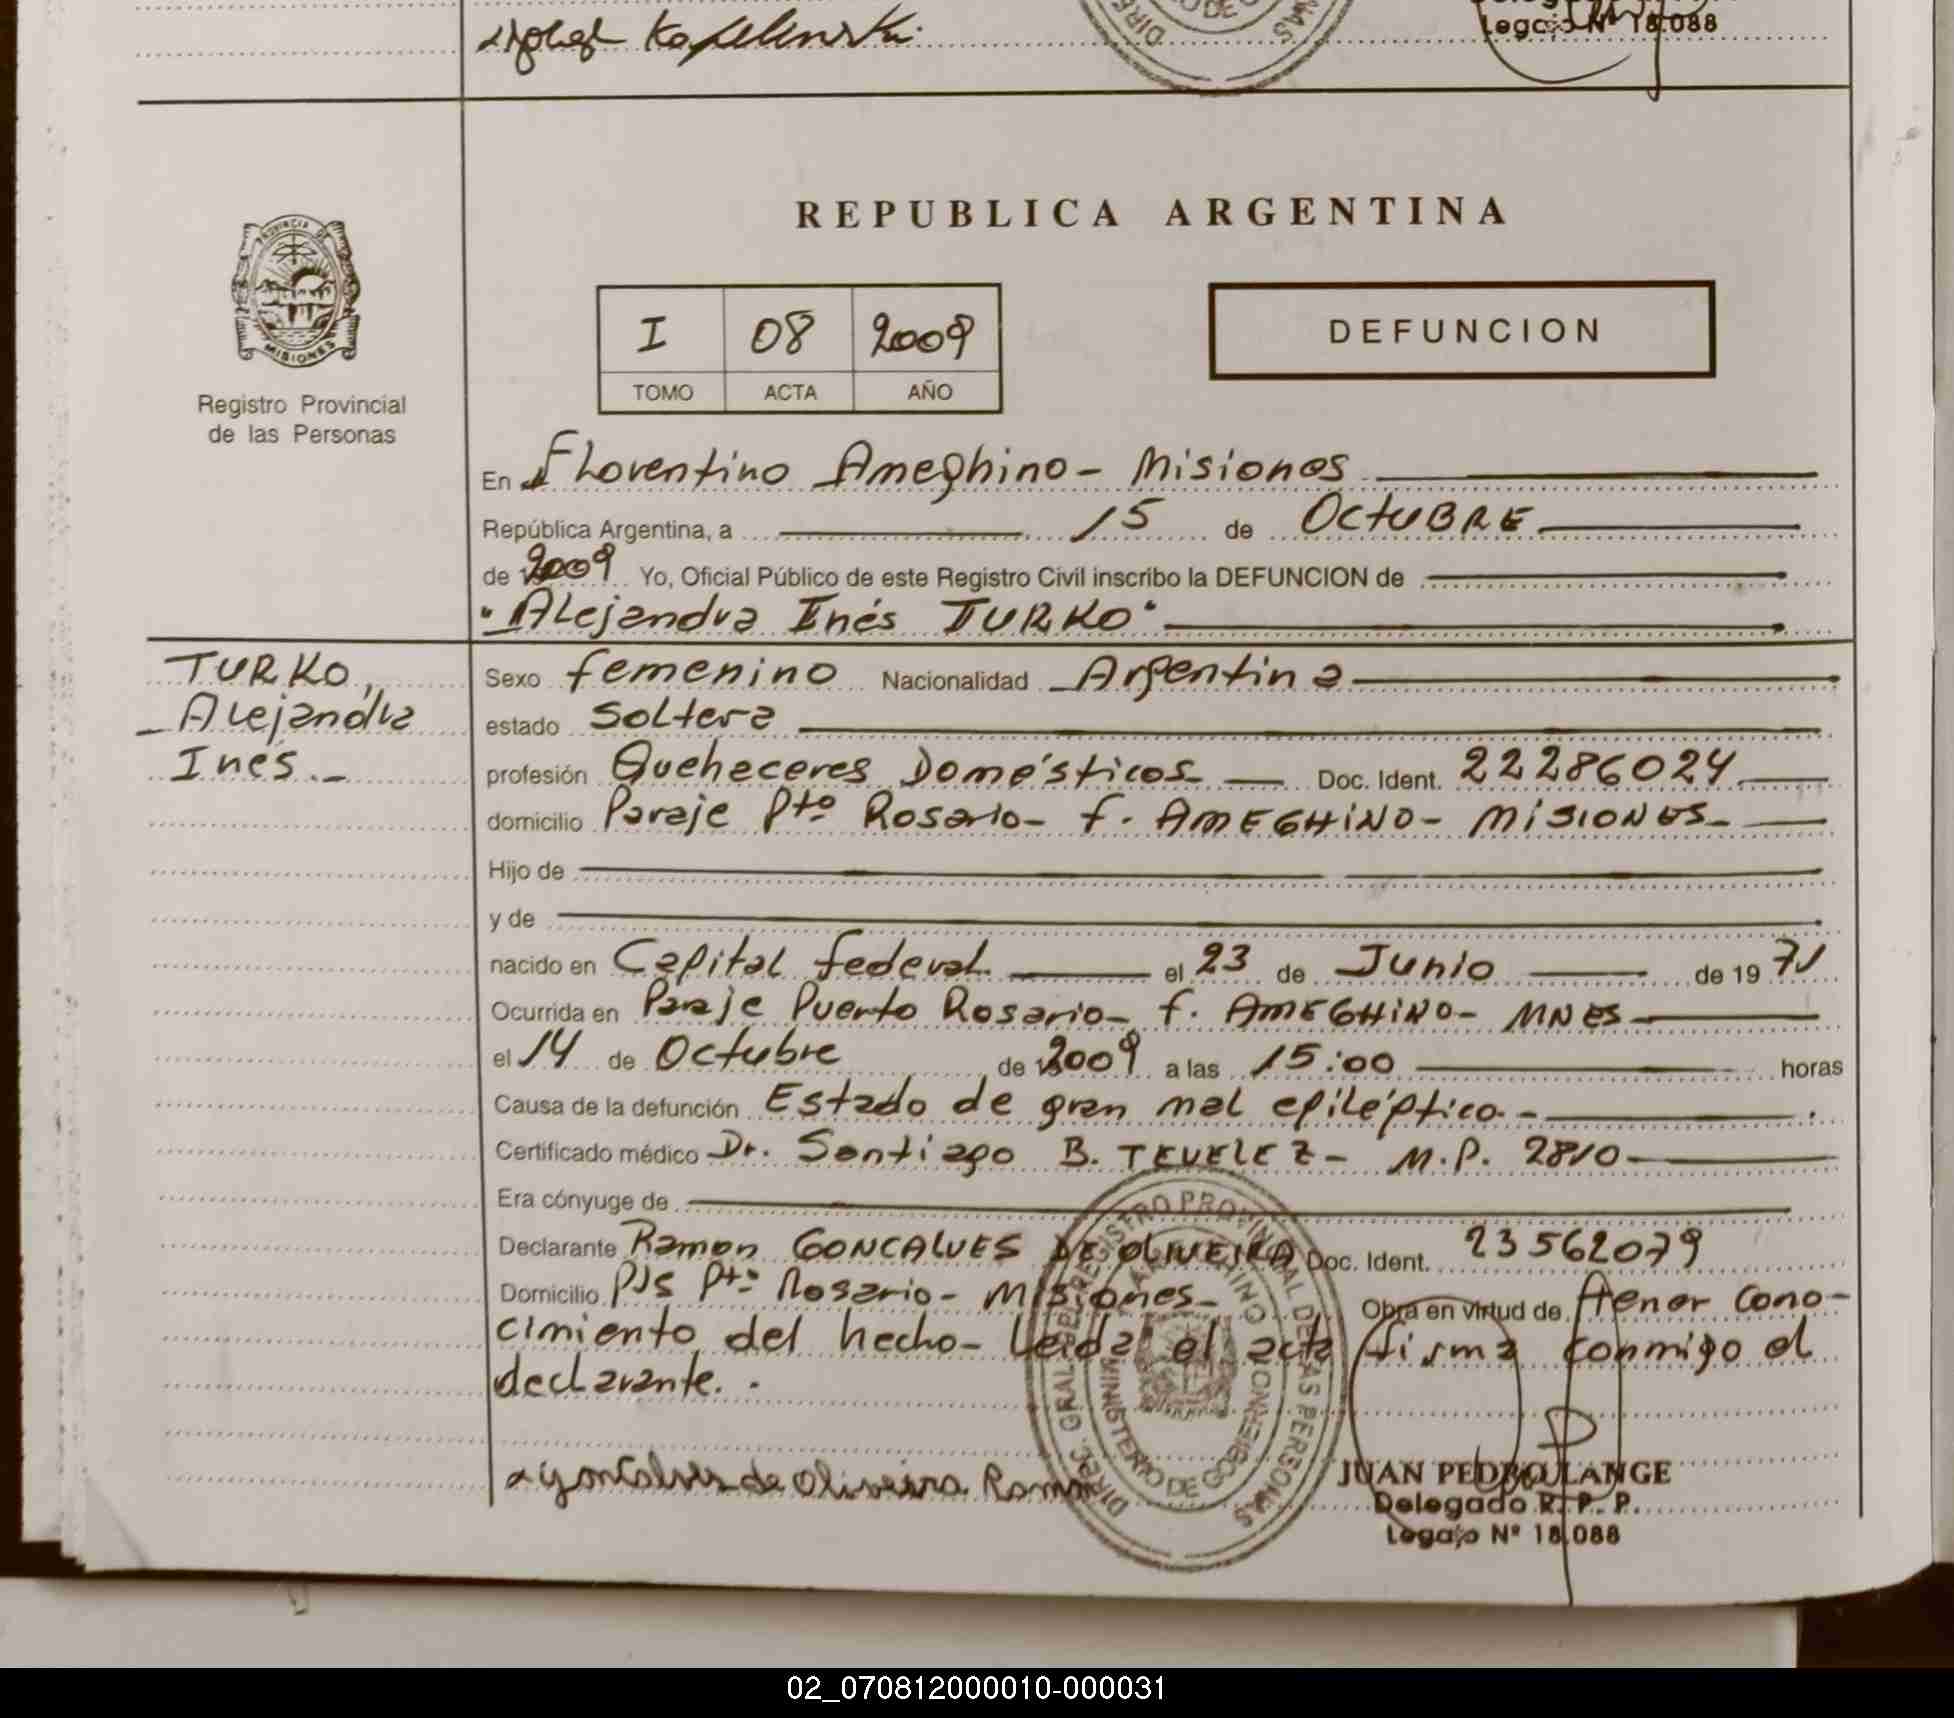 Kopelenski
Legajo Nº 18.088
REPUBLICA ARGENTINA
PROVINCIA DE
MISIONES
Registro Provincial
de las Personas
I 08 2009
TOMO ACTA AÑO
DEFUNCION
En Florentino Ameghino - Misiones
República Argentina, a 15 de OCTUBRE
de 2009 Yo, Oficial Público de este Registro Civil inscribo la DEFUNCION de
"Alejandra Inés TURKO"
TURKO,
Alejandra
Inés.-
Sexo femenino Nacionalidad Argentina
estado Soltera
profesión Queheceres Domésticos Doc. Ident. 22286024
domicilio Paraje Pto Rosario - F. AMEGHINO - MISIONES -
Hijo de
y de
nacido en Capital federal. el 23 de Junio de 1971
Ocurrida en Paraje Puerto Rosario - F. AMEGHINO - MNES
el 14 de Octubre de 2009 a las 15:00 horas
Causa de la defunción Estado de gran mal epiléptico.-
Certificado médico Dr. Santiago B. TEVELEZ - M.P. 2810
Era cónyuge de
Declarante Ramon GONCALVES DE OLIVEIRA Doc. Ident. 23562079
Domicilio PJS Pto Rosario - Misiones - Obra en virtud de tener cono-
cimiento del hecho - Leida el acta firma conmigo el
declarante. -
Goncalves de Oliveira Ramon
DIREC. GRAL. DEL REGISTRO PROVINCIAL DE LAS PERSONAS
MINISTERIO DE GOBIERNO
JUAN PEDRO LANGE
Delegado R. P. P.
Legajo Nº 18.088
02_070812000010-000031